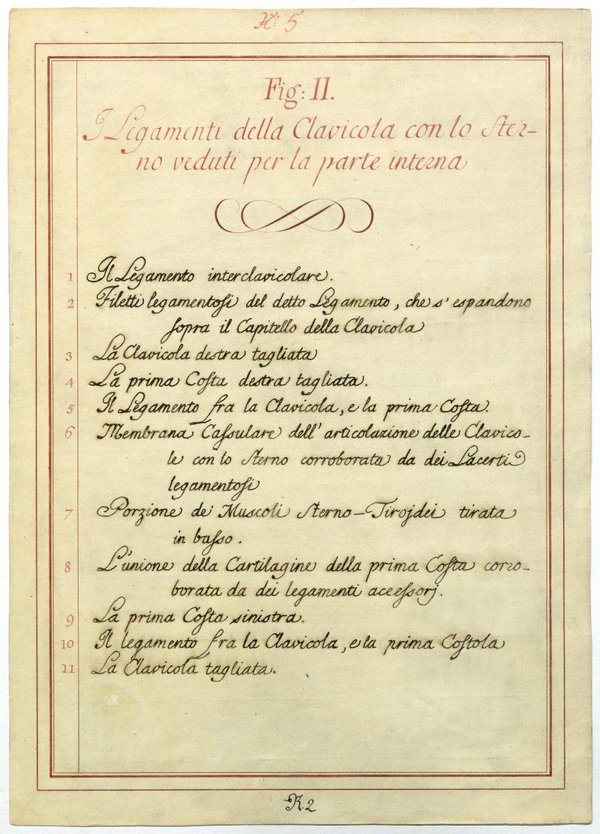 N.º 5
Fig: II.
I Legamenti della Clavicola con lo Ster-
no veduti per la parte interna
1 Il Legamento interclavicolare.
2 Filetti legamentosi del detto Legamento, che s' espandono
sopra il Capitello della Clavicola
3 La Clavicola destra tagliata
4 La prima Costa destra tagliata.
5 Il Legamento fra la Clavicola, e la prima Costa.
6 Membrana Cassulare dell' articolazione delle Clavico-
le con lo Sterno corroborata da dei Lacerti
legamentosi
7 Porzione de' Muscoli Sterno-Tirojdei tirata
in basso.
8 L'unione della Cartilagine della prima Costa corro-
borata da dei legamenti acessorj.
9 La prima Costa sinistra.
10 Il legamento fra la Clavicola, e la prima Costola
11 La Clavicola tagliata.
R.2